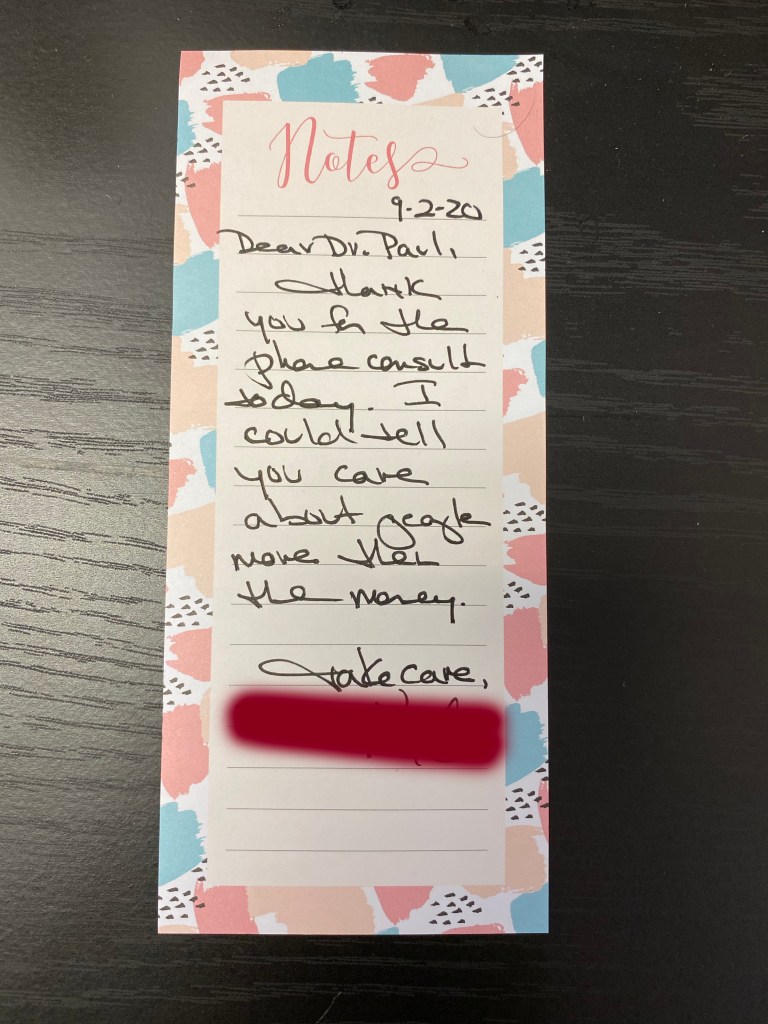 Notes
9-2-20
Dear Dr. Paul,
thank
you for the
phone consult
today. I
could tell
you care
about people
more then
the money.
take care,